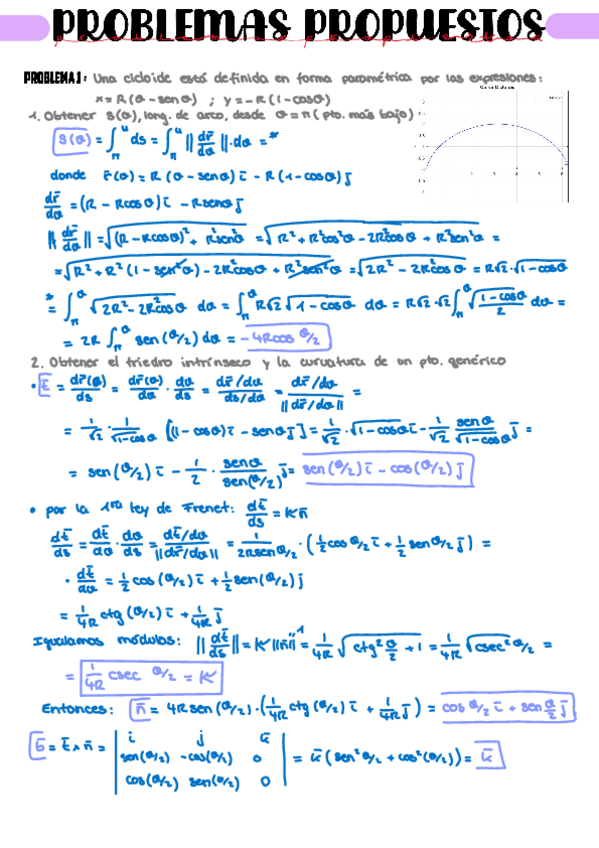 PROBLEMAS PROPUESTOS
PROBLEMA 1: Una cicloide está definida en forma paramétrica por las expresiones:
x = R(θ - senθ) ; y = -R(1 - cosθ)
1. Obtener s(θ), long. de arco, desde θ = π (pto. más bajo)
s(θ) = ∫_π^θ ds = ∫_π^θ ||dr̄/dθ||·dθ = *
donde r̄(θ) = R(θ - senθ)ī - R(1 - cosθ)j̄
dr̄/dθ = (R - Rcosθ)ī - Rsenθ j̄
||dr̄/dθ|| = √((R - Rcosθ)² + R²sen²θ) = √(R² + R²cos²θ - 2R²cosθ + R²sen²θ) =
= √(R² + R²(1 - sen²θ) - 2R²cosθ + R²sen²θ) = √(2R² - 2R²cosθ) = R√2·√(1-cosθ)
* = ∫_π^θ √(2R² - 2R²cosθ) dθ = ∫_π^θ R√2 √(1 - cosθ) dθ = R√2·√2 ∫_π^θ √((1-cosθ)/2) dθ =
= 2R ∫_π^θ sen(θ/2) dθ = -4Rcos θ/2
2. Obtener el triedro intrínseco y la curvatura de un pto. genérico
• t̄ = dr̄(θ)/ds = dr̄(θ)/dθ · dθ/ds = (dr̄/dθ)/(ds/dθ) = (dr̄/dθ)/||dr̄/dθ|| =
= 1/√2 · 1/√(1-cosθ) [(1 - cosθ)ī - senθ j̄] = 1/√2 · √(1-cosθ) ī - 1/√2 senθ/√(1-cosθ) j̄ =
= sen(θ/2)ī - 1/2 · senθ/sen(θ/2) j̄ = sen(θ/2)ī - cos(θ/2)j̄
• por la 1ra ley de Frenet: dt̄/ds = Kn̄
dt̄/ds = dt̄/dθ · dθ/ds = (dt̄/dθ)/||dr̄/dθ|| = 1/(2Rsenθ/2) · (1/2 cosθ/2 ī + 1/2 senθ/2 j̄) =
• dt̄/dθ = 1/2 cos(θ/2)ī + 1/2 sen(θ/2)j̄
= 1/4R ctg(θ/2)ī + 1/4R j̄
Igualamos módulos: ||dt̄/ds|| = K||n̄||¹ = 1/4R √(ctg² θ/2 + 1) = 1/4R √(csec² θ/2) =
= 1/4R csec θ/2 = K
Entonces: n̄ = 4Rsen(θ/2)·(1/4R ctg(θ/2)ī + 1/4R j̄) = cos θ/2 ī + sen θ/2 j̄
b̄ = t̄ ∧ n̄ = | i j k | = k̄(sen² θ/2 + cos²(θ/2)) = k̄
sen(θ/2) -cos(θ/2) 0
cos(θ/2) sen(θ/2) 0